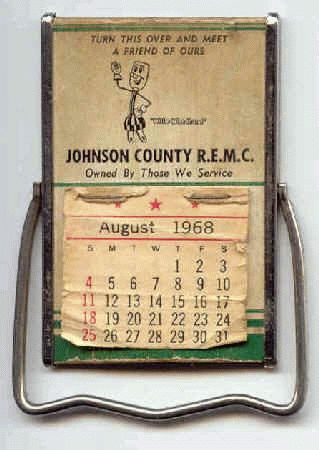 TURN THIS OVER AND MEET
A FRIEND OF OURS
"Willie Wiredhand"
JOHNSON COUNTY R.E.M.C.
Owned By Those We Service
August 1968
S M T W T F S
1 2 3
4 5 6 7 8 9 10
11 12 13 14 15 16 17
18 19 20 21 22 23 24
25 26 27 28 29 30 31